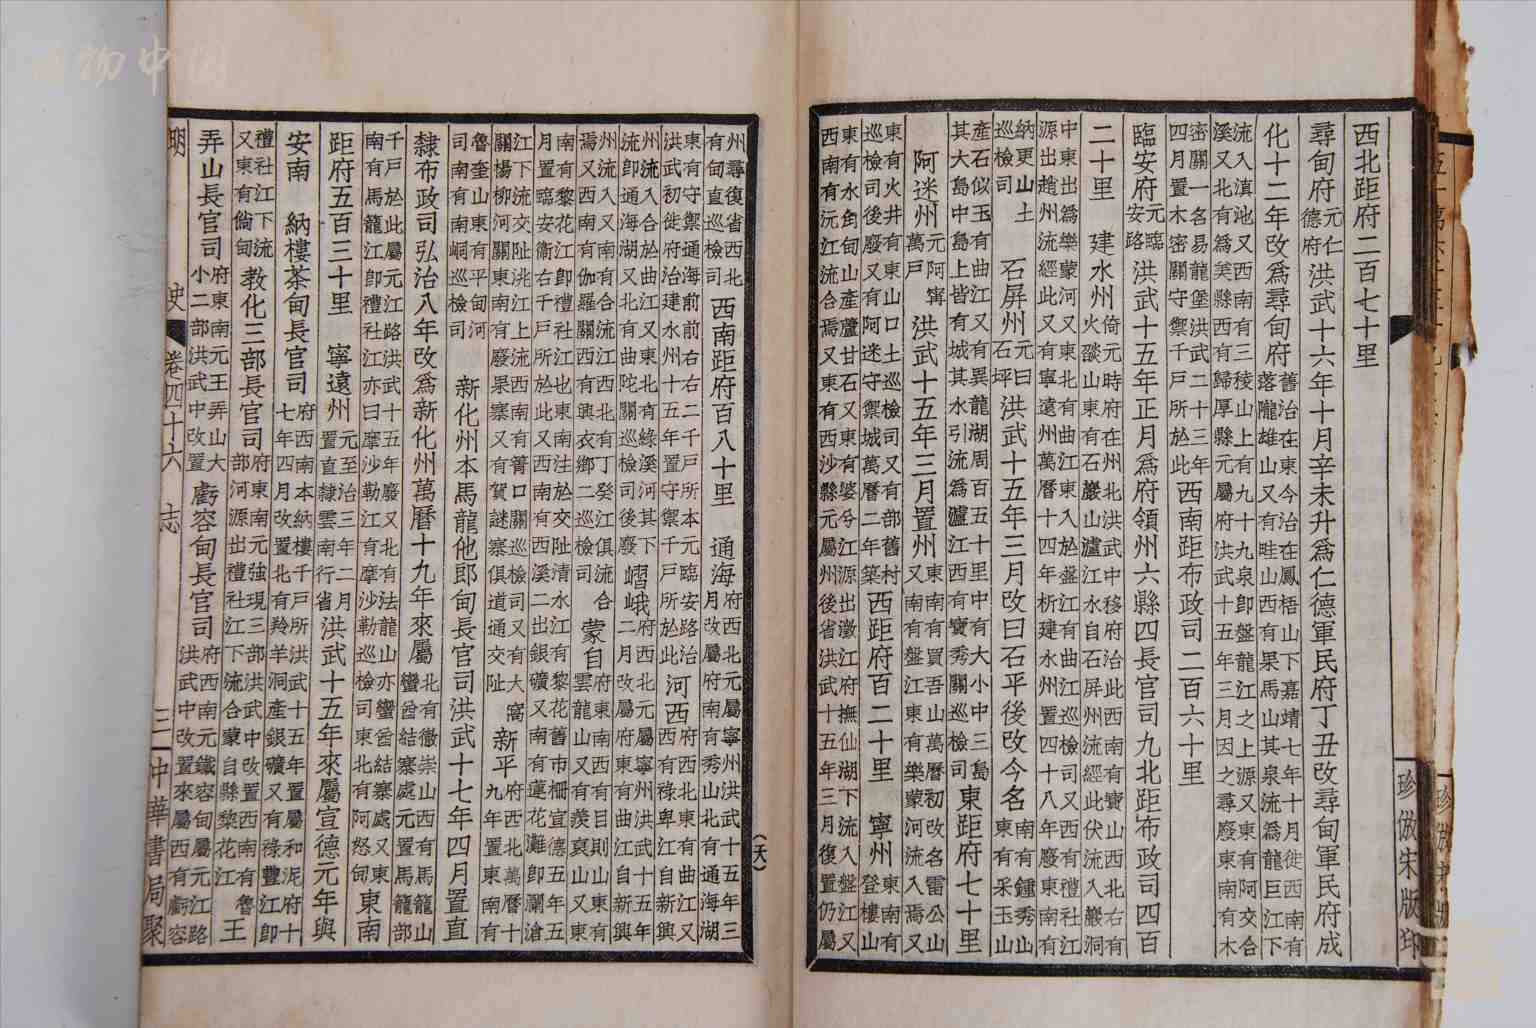 西北距府二百七十里
尋甸府元仁德府洪武十六年十月辛未升爲仁德軍民府丁丑改尋甸軍民府成
化十二年改爲尋甸府舊治在東今治在鳳梧山下嘉靖七年十月徙西南有
落隴雄山又有哇山西有果馬山其泉流爲龍巨江下
流入滇池又西南有三稜山上有九十九泉卽盤龍江之上源又東有阿交合
溪又北有爲美縣西有歸厚縣元屬府洪武十五年三月因之尋廢東南有木
密關一名易龍堡洪武二十三年
四月置木密關守禦千戶所於此西南距布政司二百六十里
臨安府元臨安路洪武十五年正月爲府領州六縣四長官司九北距布政司四百
二十里 建水州倚元時府在州北洪武中移府治此西南有寶山西北右有
火燄山東有石巖山瀘江水自石屏州流經此伏流入巖洞
中東出爲樂蒙河又東北有曲江東入於盤江有曲江巡檢司又西有禮社江
源出趙州流經此又有寧遠州萬曆十四年析建水州置四十八年廢東南有
納更山土
巡檢司 石屏州元曰石坪洪武十五年三月改曰石平後改今名南有鍾秀山
東有采玉山
產石似玉有曲江又有異龍湖周百五十里中有大小中三島
其大島中島上皆有城其水引流爲瀘江西有寶秀關巡檢司東距府七十里
阿迷州元阿甯萬戶洪武十五年三月置州東南有買吾山萬曆初改名雷公山
又南有盤江東有樂蒙河流入焉又
東有火井有東山口土巡檢司又有部舊村
巡檢司後廢又有阿迷守禦城萬曆二年築西距府百二十里 寧州東南有登樓山
東有水角甸山產蘆甘石又東有婆兮江源出澂江府撫仙湖下流入盤江又
西南有沅江流合焉又東有西沙縣元屬州後省洪武十五年三月復置仍屬
珍倣宋版印
州尋復省西北
有甸苴巡檢司西南距府百八十里 通海府西北元屬寧州洪武十五年三
月改屬府南有秀山北有通海湖
東有守禦通海前前右右二千戶所本元臨安路治
洪武初徙府治建水州十五年置守禦千戶所於此河西府西北東有曲江又
西有祿卑江自新興
州流入合於曲江又東北有綠溪河其下
流卽通海湖又北有曲陀關巡檢司後廢嶍峨府西北元屬寧州洪武十五年
二月改屬府東有曲江自新興
州流入又南有合流江西北有丁癸江俱流合
焉又西南有伽羅關西有興衣鄉二巡檢司蒙自府東南西有目則山東有
雲龍山又有羨裒山又東
南有黎花江卽禮社江也東南注於交阯清水江有黎花舊市柵宣德五年五
月置臨安衞右千戶所於此又西南有西溪二出銀礦又南有蓮花灘卽瀾滄
江下流交阯洮江上流西南有箐口關巡檢司又有大窩
關楊柳河關東南有廢果寨又有賀謎寨俱道通交阯新平府西北萬曆十
九年置東南有
魯奎山東有平甸河
司南有南峒巡檢司 新化州本馬龍他郎甸長官司洪武十七年四月置直
隸布政司弘治八年改爲新化州萬曆十九年來屬北有徹崇山西有馬籠山
蠻酋結寨處元置馬籠部
千戶於此屬元江路洪武十五年廢又北有法龍山亦蠻酋結寨處又東
南有馬龍江卽禮社江亦曰摩沙勒江有摩沙勒巡檢司東北有阿怒甸東南
距府五百三十里 寧遠州元至治三年二月
置直隸雲南行省洪武十五年來屬宣德元年與
安南 納樓茶甸長官司府西南本納樓千戶所洪武十五年置屬和泥府十
七年四月改置北有羚羊洞產銀礦又有祿豐江卽
禮社江下流
又東有倘甸教化三部長官司府東南元強現三部洪武中改置西南有魯
部河源出禮社江下流合蒙自縣梨花江王
弄山長官司府東南元王弄山大
小二部洪武中改置虧容甸長官司府西南元鐵容甸屬元江路
洪武中改置來屬西有虧容
明 史 卷四十六 志 三 中華書局聚